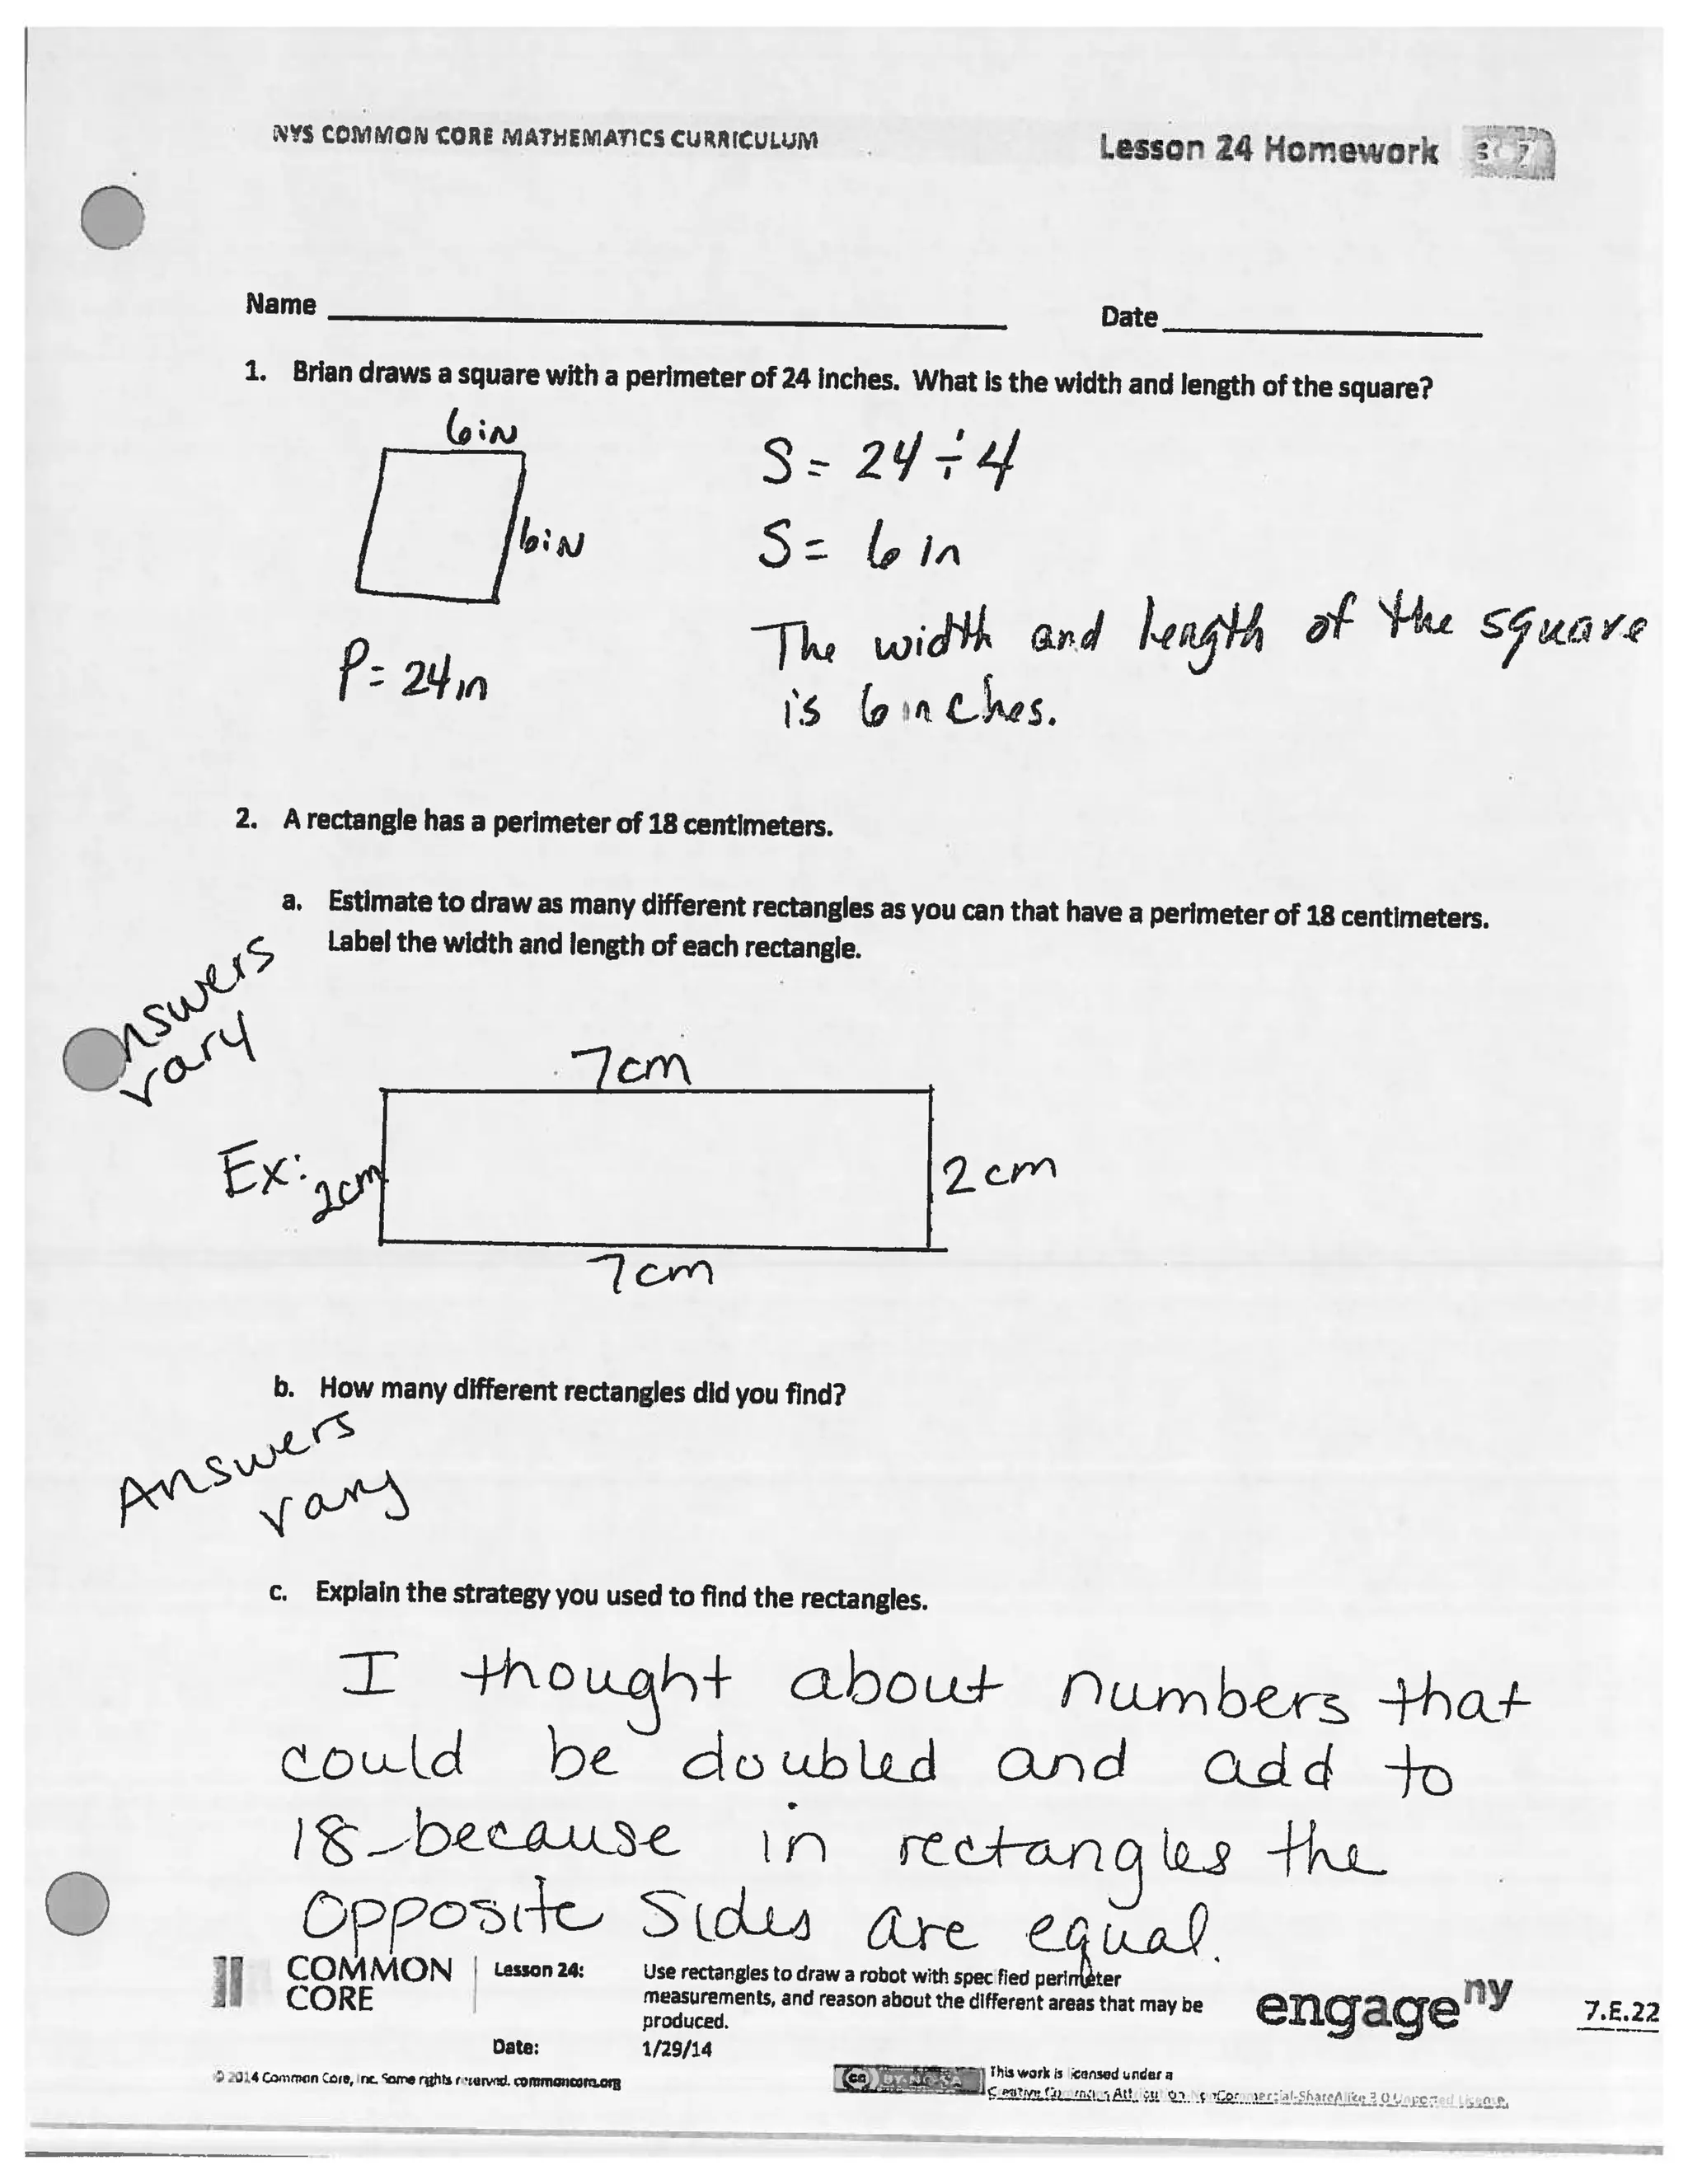 NYS COMMON CORE MATHEMATICS CURRICULUM
Lesson 24 Homework 3 7
Name
Date
1. Brian draws a square with a perimeter of 24 inches. What is the width and length of the square?
6in
6in
P = 24in
S = 24 ÷ 4
S = 6 in
The width and length of the square
is 6 inches.
2. A rectangle has a perimeter of 18 centimeters.
a. Estimate to draw as many different rectangles as you can that have a perimeter of 18 centimeters.
Label the width and length of each rectangle.
nswers
vary
7cm
Ex: 2cm
2cm
7cm
b. How many different rectangles did you find?
Answers
vary
c. Explain the strategy you used to find the rectangles.
I thought about numbers that
could be doubled and add to
18 because in rectangles the
opposite sides are equal.
COMMON
CORE
Lesson 24:
Use rectangles to draw a robot with spec fied perimeter
measurements, and reason about the different areas that may be
produced.
Date:
1/29/14
engage ny
7.E.22
© 2014 Common Core, Inc. Some rights reserved. commoncore.org
cc BY-NC-SA
This work is licensed under a
Creative Commons Attribution-NonCommercial-ShareAlike 3.0 Unported License.